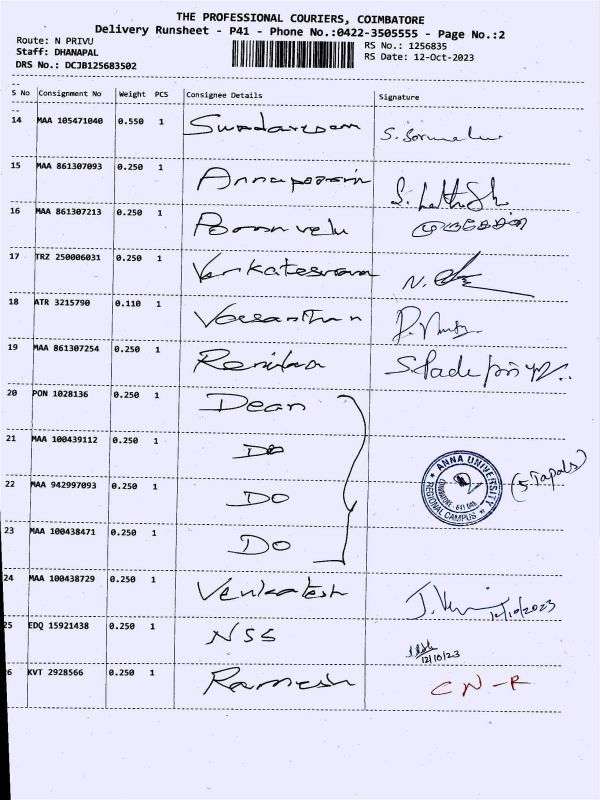 THE PROFESSIONAL COURIERS, COIMBATORE
Delivery Runsheet - P41 - Phone No.:0422-3505555 - Page No.:2
Route: N PRIVU
RS No.: 1256835
Staff: DHANAPAL
RS Date: 12-Oct-2023
DRS No.: DCJB125683502
S No Consignment No Weight PCS Consignee Details Signature
14 MAA 105471040 0.550 1
15 MAA 861307093 0.250 1
16 MAA 861307213 0.250 1
17 TRZ 250006031 0.250 1 Venkatesvaran N.
18 ATR 3215790 0.110 1 Vasanthan
19 MAA 861307254 0.250 1
20 PON 1028136 0.250 1 Dean
21 MAA 100439112 0.250 1 DO
22 MAA 942997093 0.250 1 DO ANNA UNIVERSITY REGIONAL CAMPUS COIMBATORE (5 Tapals)
23 MAA 100438471 0.250 1 DO
24 MAA 100438729 0.250 1 Venkatesh 12/10/2023
25 EDQ 15921438 0.250 1 NSS 12/10/23
6 KVT 2928566 0.250 1 Ramesh CN-R